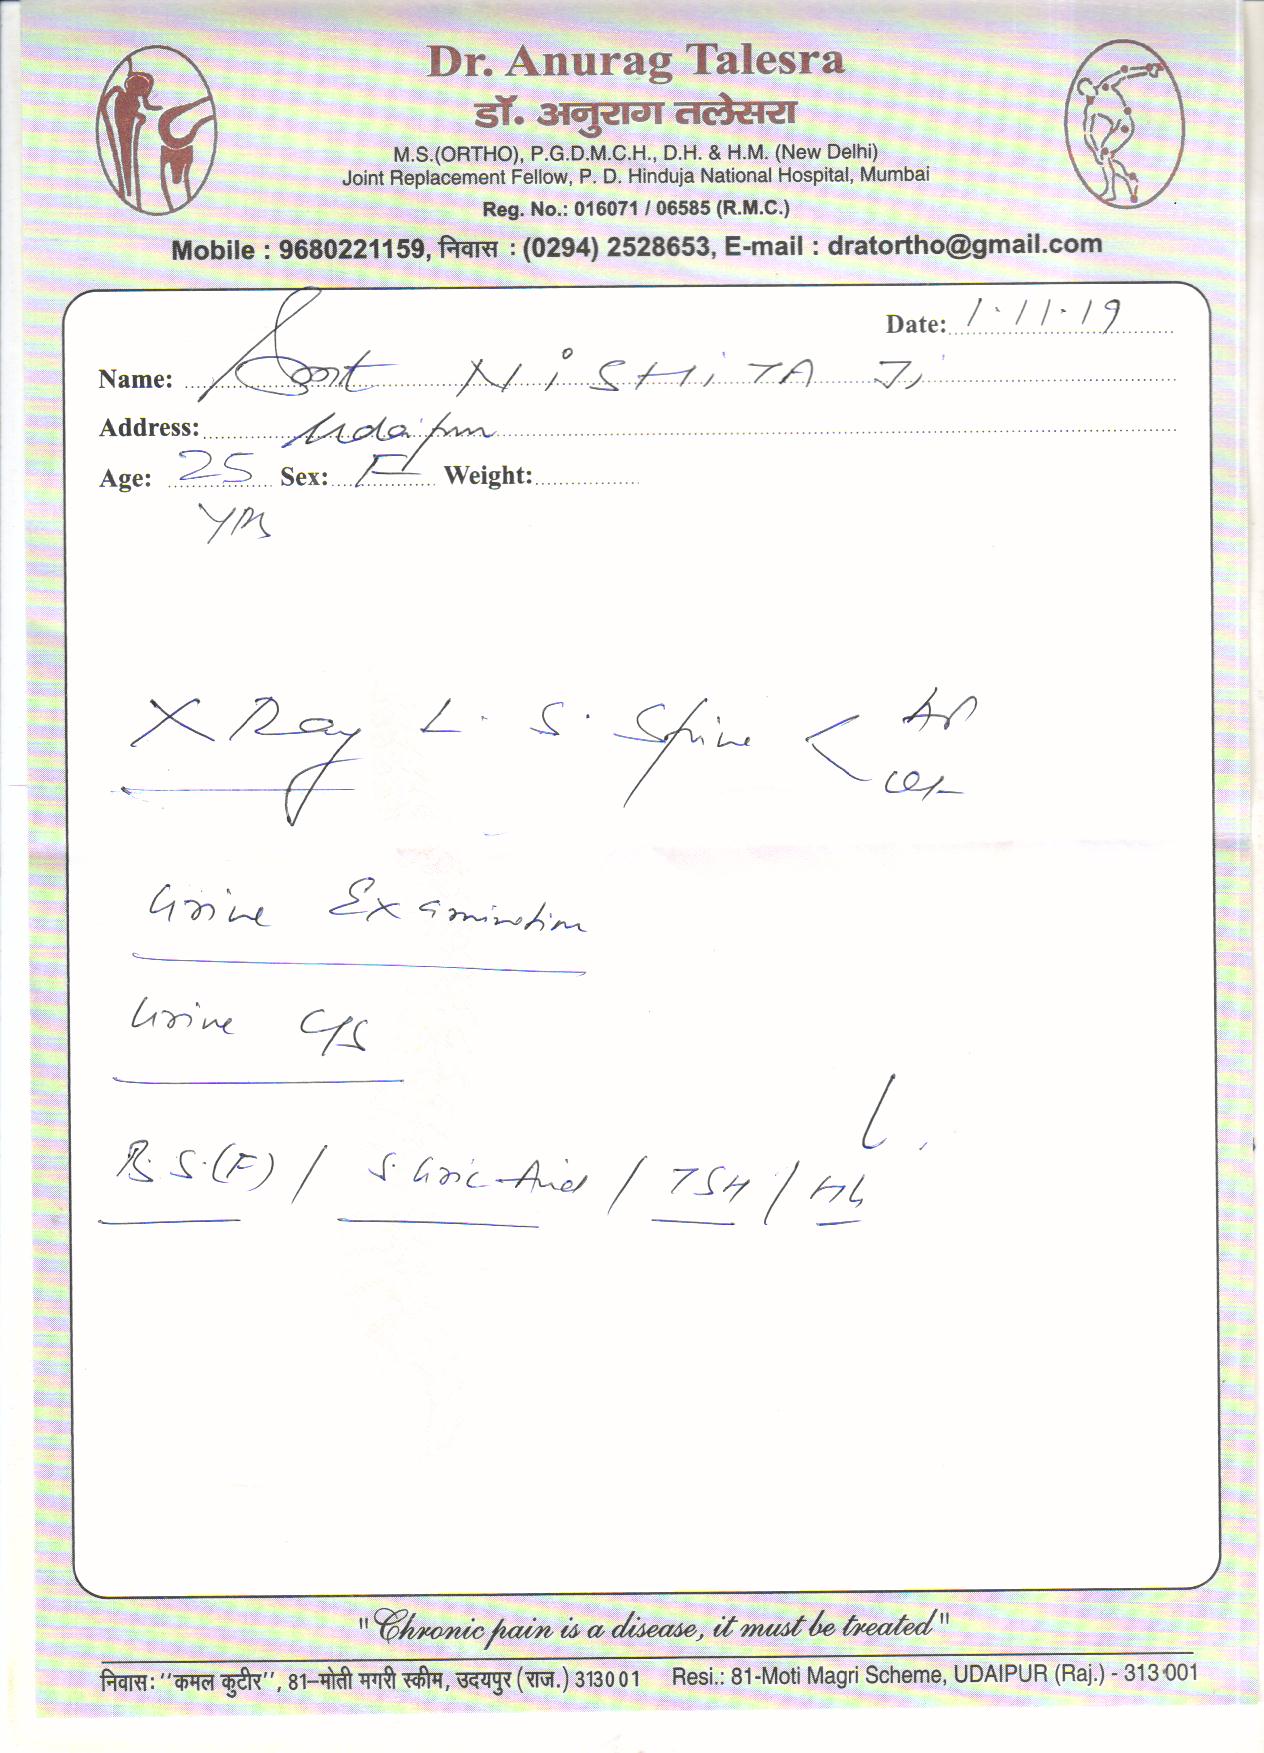 Dr. Anurag Talesra
डॉ. अनुराग तलेसरा
M.S.(ORTHO), P.G.D.M.C.H., D.H. & H.M. (New Delhi)
Joint Replacement Fellow, P. D. Hinduja National Hospital, Mumbai
Reg. No.: 016071 / 06585 (R.M.C.)
Mobile : 9680221159, निवास : (0294) 2528653, E-mail : dratortho@gmail.com
Date: 1.11.19
Name: Smt NiSHiTA Ji
Address: Udaipur
Age: 25 Sex: F Weight:
yrs
X Ray L. S. Spine < AP
Urine Examination
Urine C/S
B.S.(F) / S. Uric Acid / TSH / Hb
"Chronic pain is a disease, it must be treated"
निवास: ''कमल कुटीर'', 81–मोती मगरी स्कीम, उदयपुर (राज.) 313001 Resi.: 81-Moti Magri Scheme, UDAIPUR (Raj.) - 313001